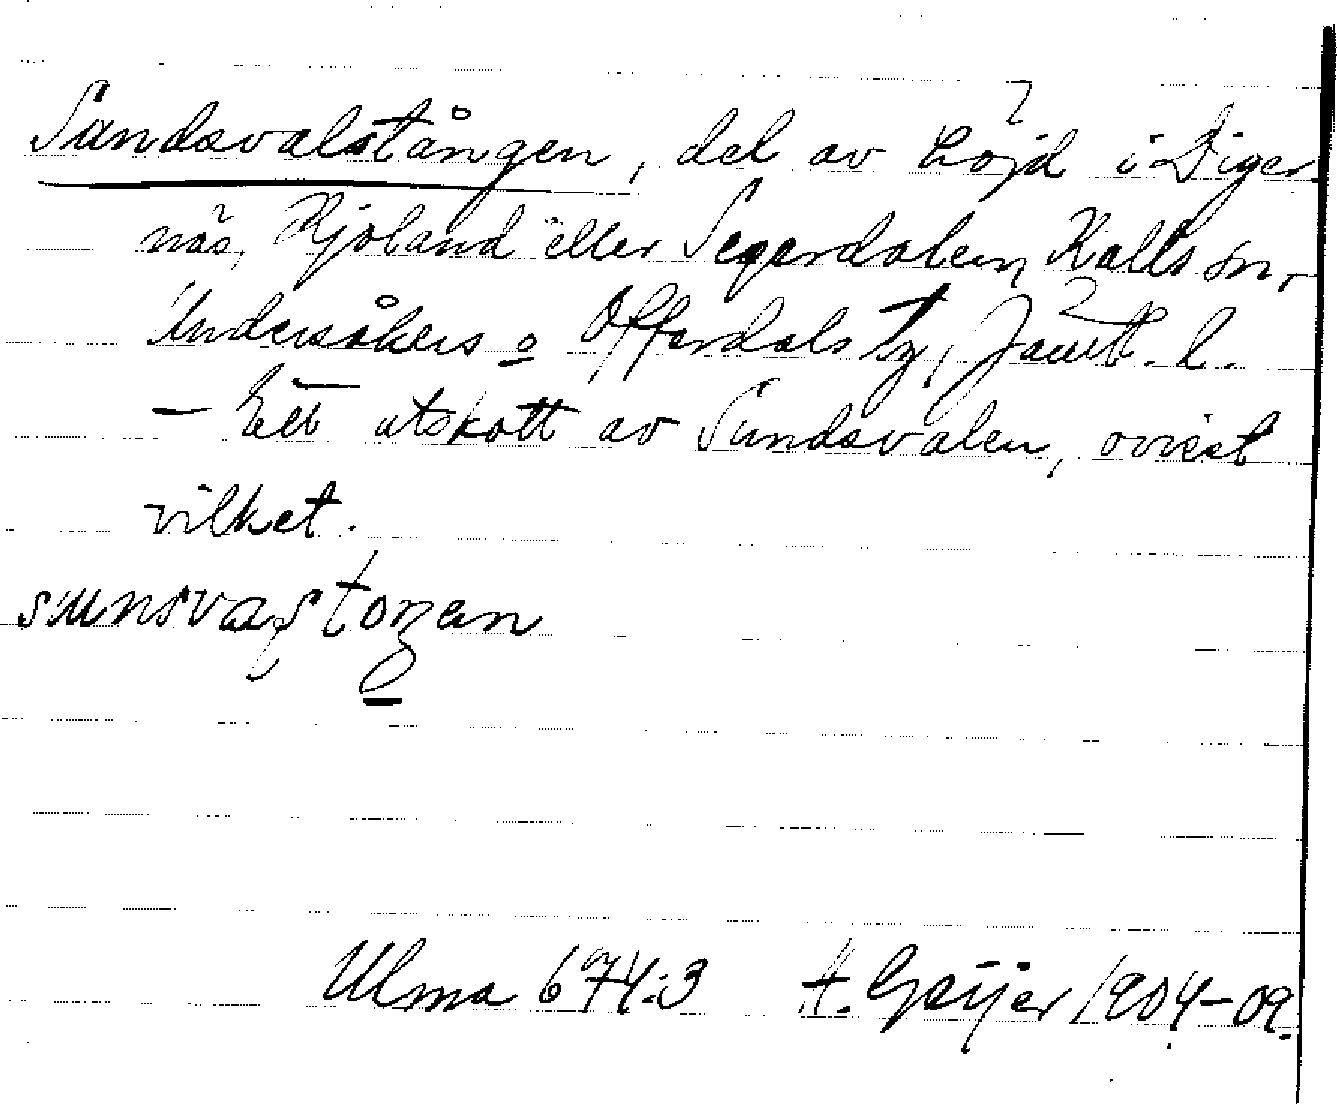 Sundsvalstången, del av höjd i Diger-
näs, Kjoland eller Segerdalen, Kalls sn,
Undersåkers o Offerdals tg, Jämt. l.
– Ett utskott av Sundsvalen, ovisst
vilket.
sunsvaʃtoŋen
Ulma 674:3 H. Geijer 1904–09.